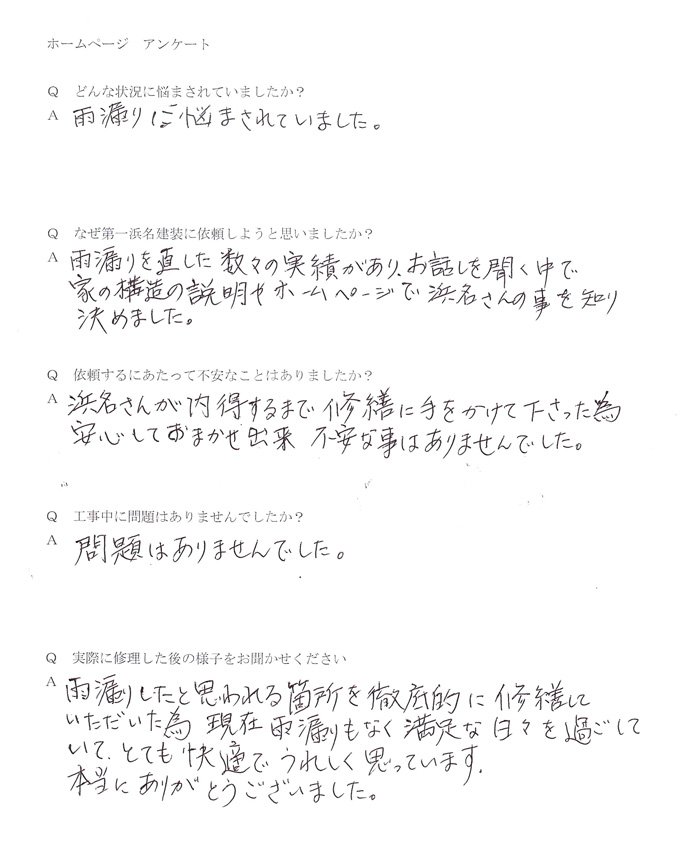 ホームページ　アンケート
Q　どんな状況に悩まされていましたか？
A　雨漏りに悩まされていました。
Q　なぜ第一浜名建装に依頼しようと思いましたか？
A　雨漏りを直した数々の実績があり、お話しを聞く中で
家の構造の説明やホームページで浜名さんの事を知り
決めました。
Q　依頼するにあたって不安なことはありましたか？
A　浜名さんが内得するまで修繕に手をかけて下さった為
安心しておまかせ出来　不安な事はありませんでした。
Q　工事中に問題はありませんでしたか？
A　問題はありませんでした。
Q　実際に修理した後の様子をお聞かせください
A　雨漏りしたと思われる箇所を徹底的に修繕して
いただいた為　現在雨漏りもなく満足な日々を過ごして
いて、とても快適でうれしく思っています。
本当にありがとうございました。